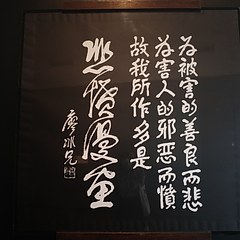 为被害的善良而悲
为害人的邪恶而憤
故我所作多是
悲憤漫画
廖冰兄